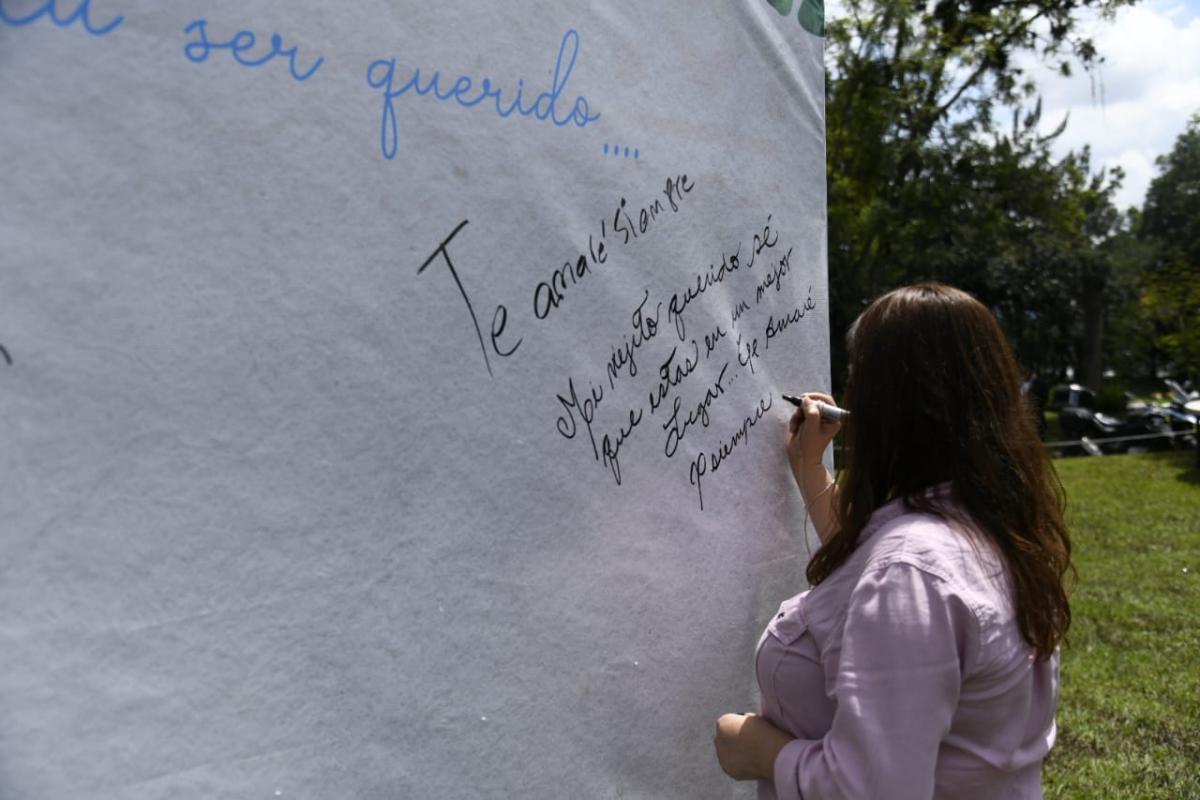 tu ser querido....
Te amaré Siempre
Mi viejito querido sé
que estas en un mejor
Lugar... Te Amaré
Psiempre